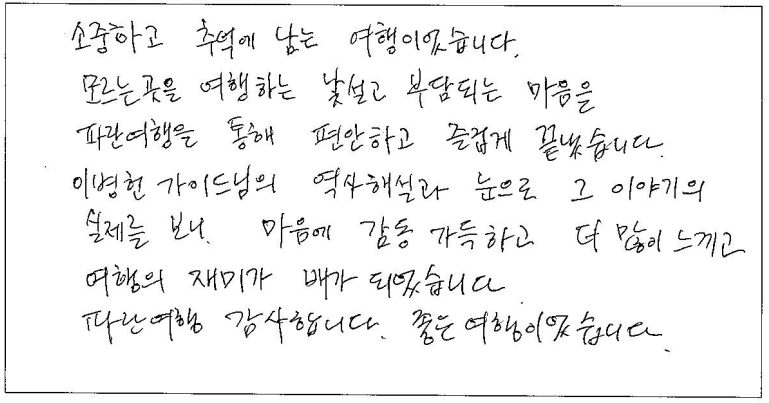 소중하고 추억에 남는 여행이었습니다.
모르는곳을 여행하는 낯설고 부담되는 마음을
파란여행을 통해 편안하고 즐겁게 끝냈습니다.
이병헌 가이드님의 역사해설과 눈으로 그 이야기의
실제를 보니, 마음에 감동 가득하고 더 많이 느끼고
여행의 재미가 배가 되었습니다
파란여행 감사합니다. 좋은여행이었습니다.